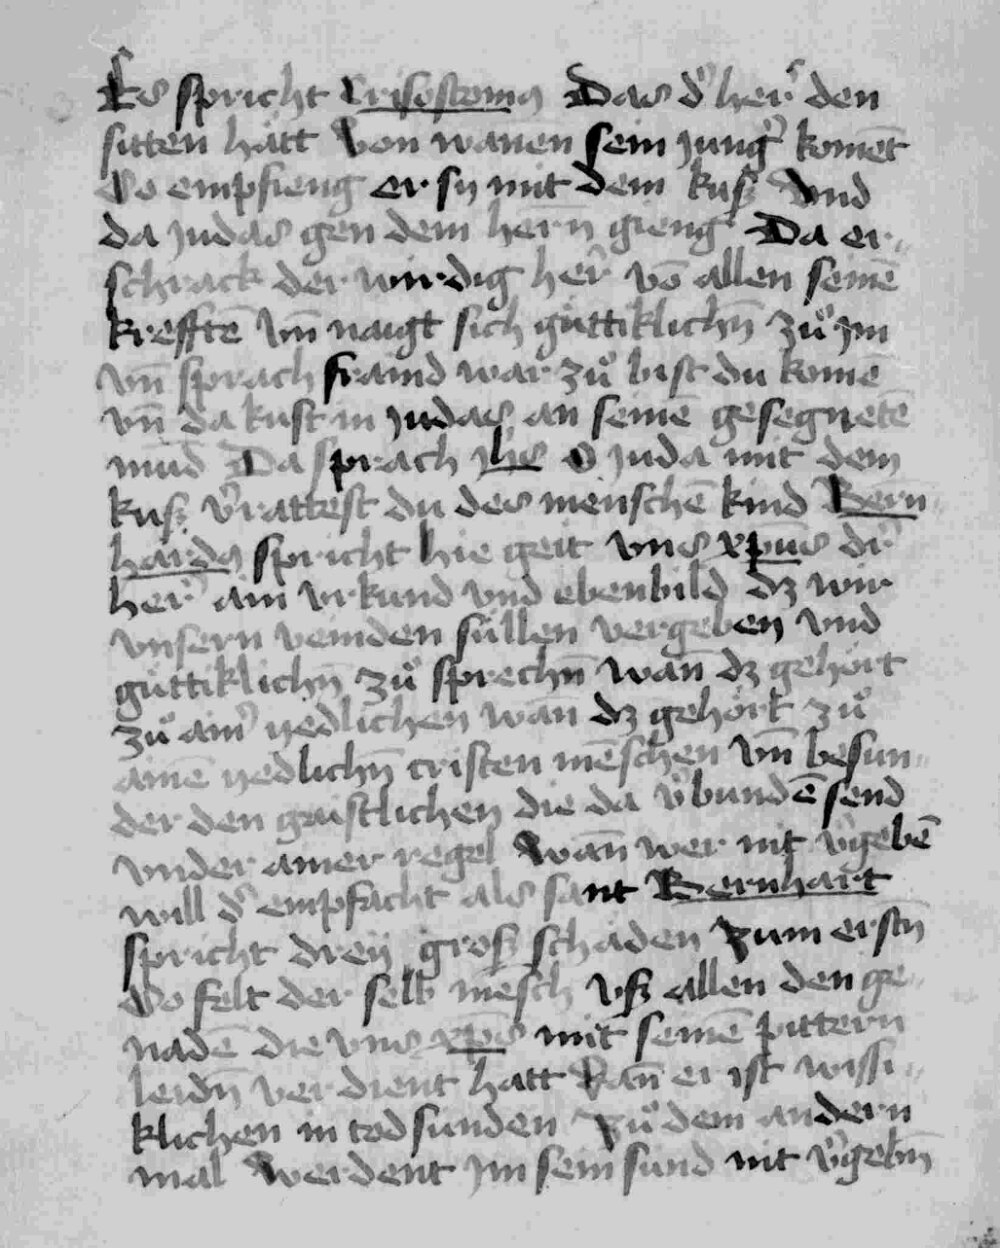 Es spricht Crisostomꝰ Das dˀ herˀ den
sitten hătt Von wanen sein jungˀ komēt
So empfieng er sy mit dem kusß Vnd
da judas gen dem hern̄ gieng Da er„
schrack der wirdig herˀ vō allen seinē
krefftē Vn̄ naigt sich güttiklichn̄ zuͦ jm
vn̄ sprach fraind war zuͦ bist du komē
vn̄ da kust in judas an seinē gesegnetē
mūd Da sprach jhs O juda mit dem
kusß vˀrattest du des menschē kind Bern„
hardꝰ spricht hie geit vns xp̄us drˀ
herˀ ain vrkund vnd ebenbild dz wir
vnsern veinden süllen vergeben vnd
güttiklichn̄ zuͦ sprechn̄ wan̄ dz gehört
zuͦ aimˀ yedlichen wan̄ dz gehört zuͦ
ainē yedlichn̄ cristen mēschen vn̄ besun„
der den gaistlichen die da vˀbundē send
vnder ainer regel Wan̄ wer nit vˀgebē
will dˀ empfacht als sant Bernhart
spricht dreÿ grosß schäden Zum erstn̄
So felt der selb mēsch vsß allen den ge„
nadē die vns xp̄s mit seinē pittern
leidn̄ verdient hatt Wan̄ er ist wissi„
klichen in tod sunden Zuͦ dem andern
mal Werdent jm sein sünd nit vˀgebn̄